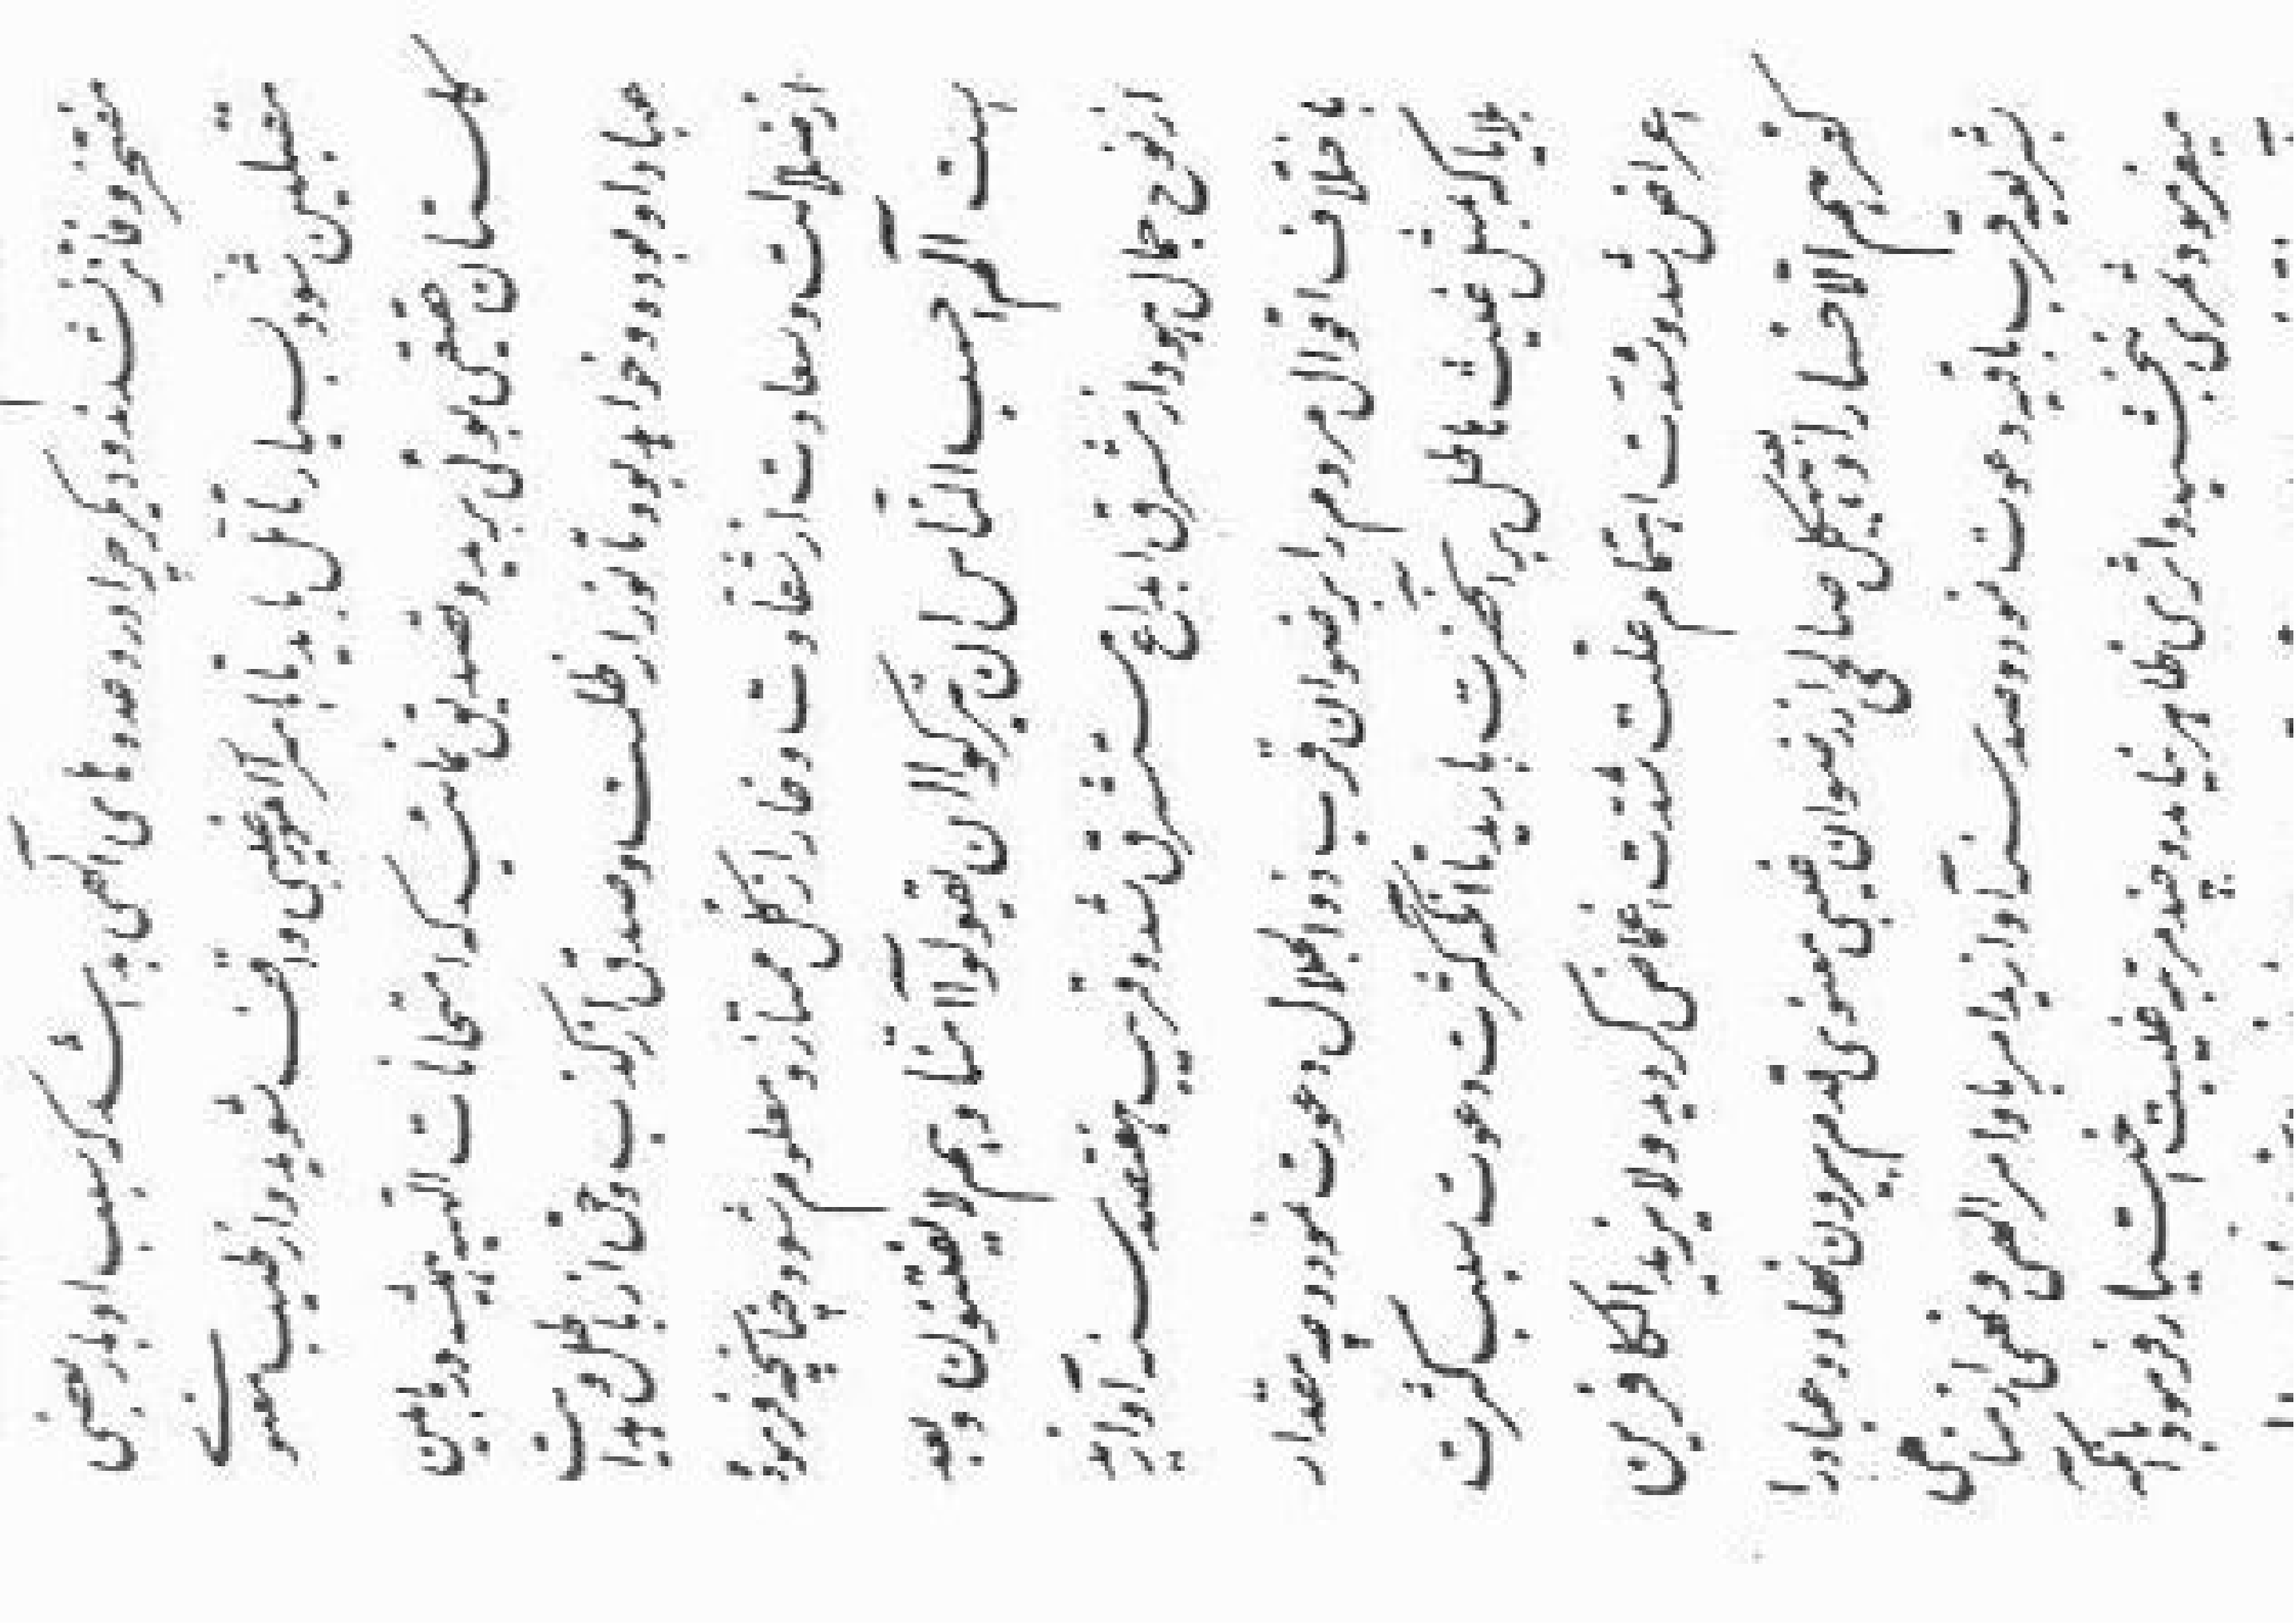 مفتخر و فائز نشدند و دیگر چرا در وعدهای الهی بدا شد که سبب ادبار بعضی
مقبلین شود بسیار تامل باید تا بر اسرار امور غیبی واقف شوید و از طیب معنوی
گلستان حقیقی بوئی برید و تصدیق نمائید که امتحانات الهیه همیشه در مابین
عباد او بوده و خواهد بود تا نور از ظلمت و صدق از کذب و حق از باطل و هدایت
از ضلالت و سعادت از شقاوت و خار از گل ممتاز و معلوم شود چنانچه فرموده
الم احسب النّاس ان یترکوا ان یقولوا آمنّا و هم لا یفتنون و بعد
از نوح جمال هود از مشرق ابداع مشرق شد و قریب هفتصد سنه او ازید
باختلاف اقوال مردم را برضوان قرب ذوالجلال دعوت نمود و چه مقدار
بلایا که بمثل غیث هاطل بر آنحضرت بارید تا آنکه کثرت دعوت سبب کثرت
اعراض شد و شدّت اهتمام علت شدّت اغماض گردید و لا یزید الکافرین
کفرهم الا خسارا و بعد هیکل صالحی از رضوان غیبی معنوی قدم بیرون نهاد و عباد را
بشریعه قرب باقیه دعوت نمود و صد سنه او ازید امر باوامر الهی و نهی از مناهی
میفرمود ثمری نبخشید و اثری ظاهر نیامد و چند مرتبه غیبت اختیار فرمود با آنکه آن